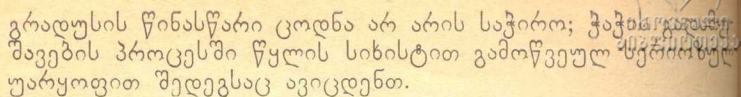 გრადუსის წინასწარი ცოდნა არ არის საჭირო; ჭაჭის გადამუ-
შავების პროცესში წყლის სიხისტით გამოწვეულ სერიოზულ
უარყოფით შედეგსაც ავიცდენთ.